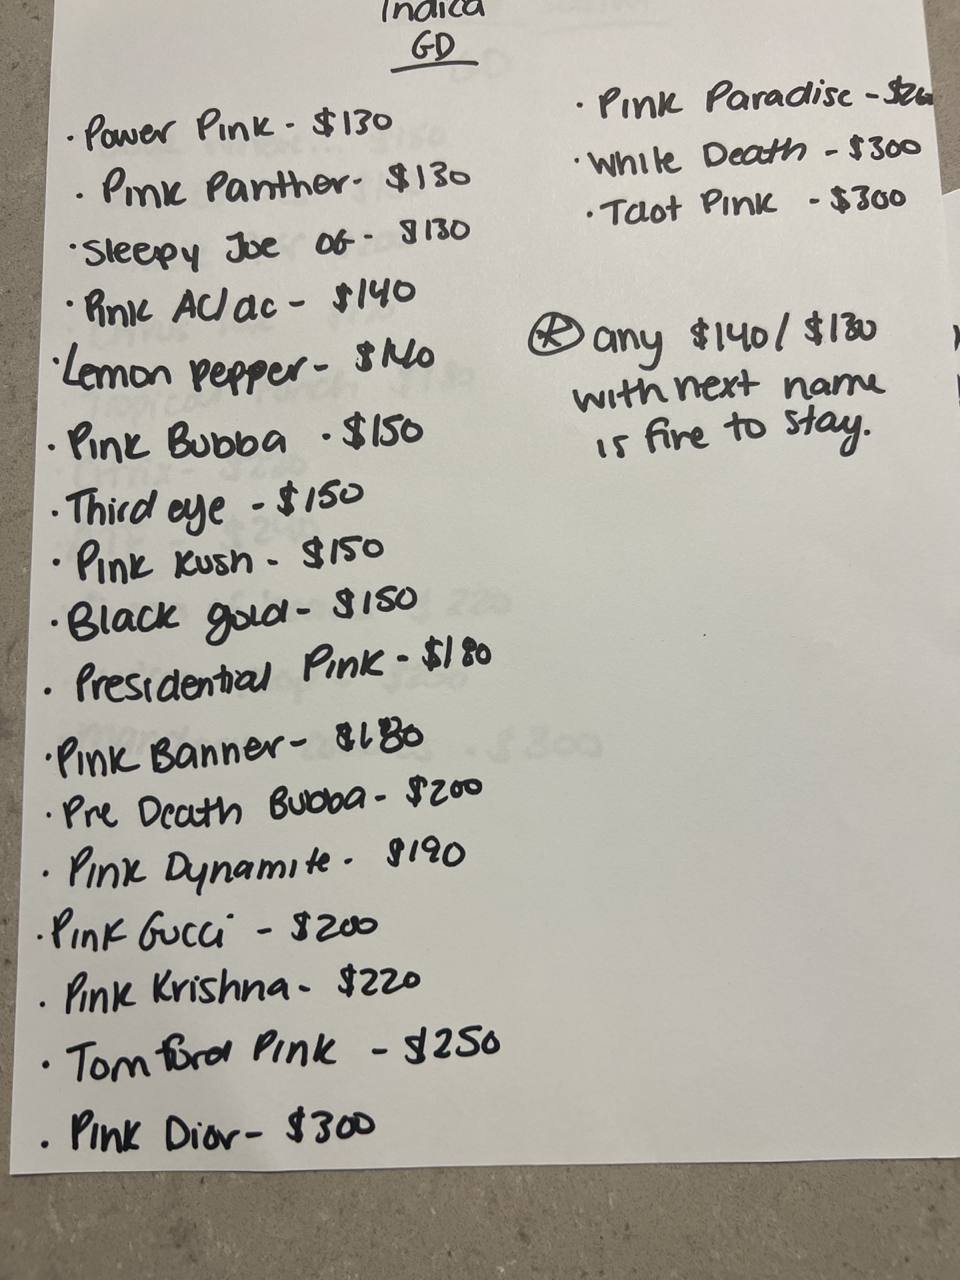 Indica
GD
· Power Pink - $130
· Pink Panther - $130
· Sleepy Joe OG - $130
· Pink AC/ac - $140
· Lemon pepper - $140
· Pink Bubba - $150
· Third eye - $150
· Pink Kush - $150
· Black gold - $150
· Presidential Pink - $180
· Pink Banner - $180
· Pre Death Bubba - $200
· Pink Dynamite - $190
· Pink Gucci - $200
· Pink Krishna - $220
· Tom ford Pink - $250
· Pink Dior - $300
· Pink Paradise -
· White Death - $300
· Pink - $300
* any $140 / $130
with next name
is fire to stay.